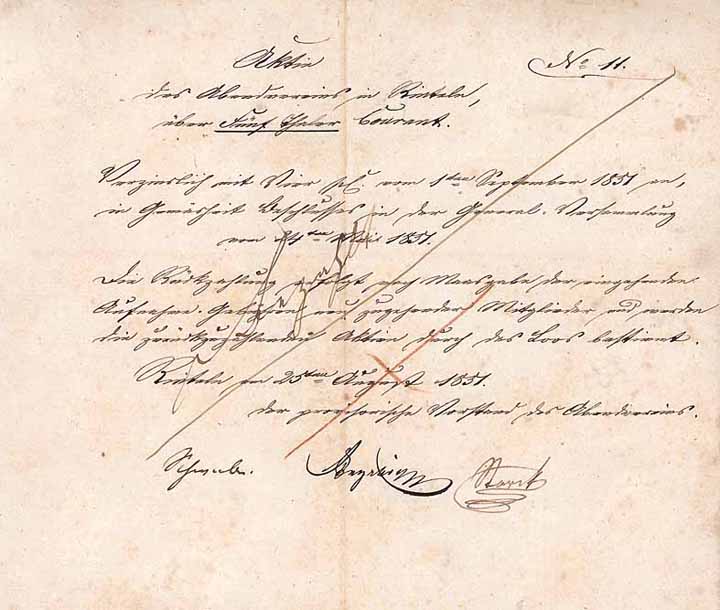 Aktie
No 11.
des Abendvereins in Rinteln,
über Fünf Thaler Courant.
Verzinslich mit Vier pCt. vom 1ten September 1851 an,
in Gemäsheit Beschlusses in der General-Versammlung
vom 24ten 1851.
Die Rückzahlung erfolgt nach Maasgabe der eingehenden
Aufnahme-Gebühren noch zugehender Mitglieder und werden
die zurückzuzahlenden Aktien durch das Loos bestimmt.
Rinteln am 25ten August 1851.
der provisorische Vorstand des Abendvereins.
bezahlt
Schwabe.
Storck